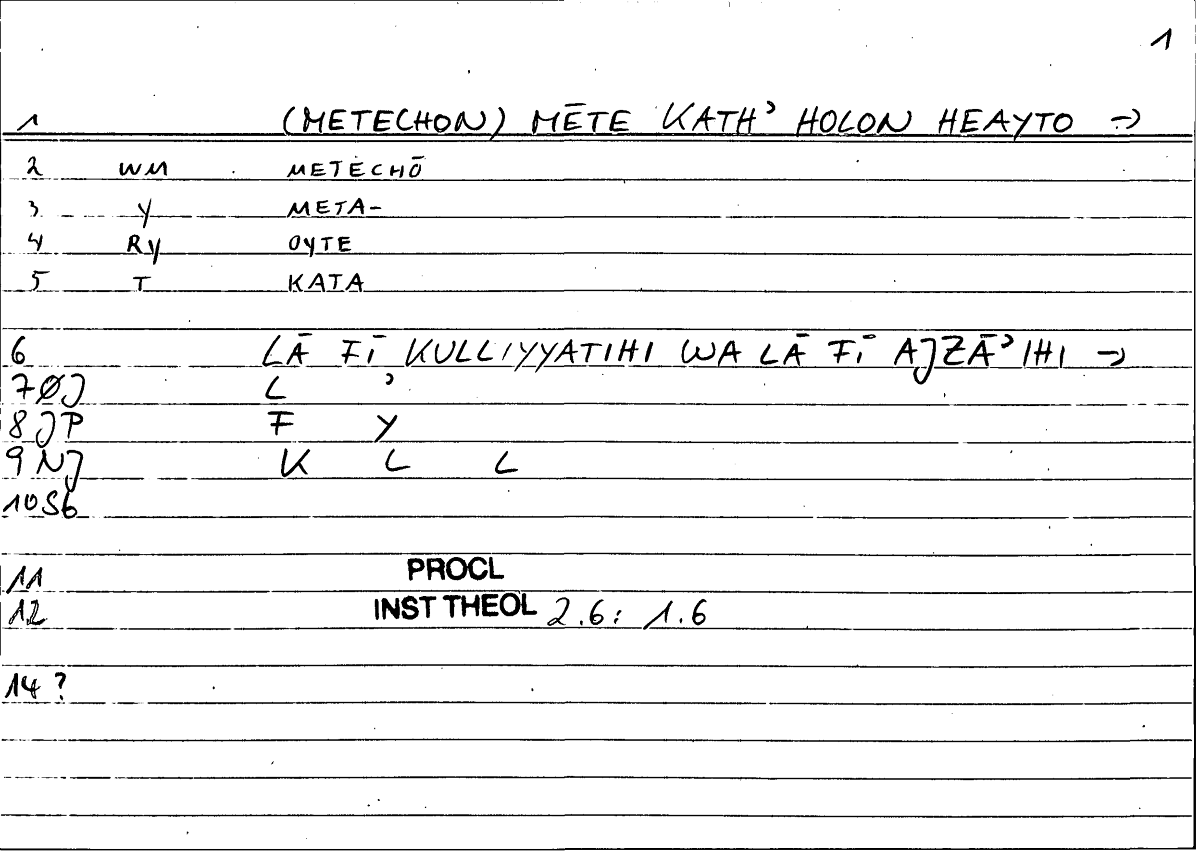 1
1 (METECHON) MĒTE KATH' HOLON HEAYTO →
2 WM METECHŌ
3 Y META-
4 RY OYTE
5 T KATA
6 LĀ FĪ KULLIYYATIHI WA LĀ FĪ AJZĀʾIHI →
7ØJ L ʾ
8JP F Y
9NJ K L L
10S6
11 PROCL
12 INST THEOL 2.6: 1.6
14?